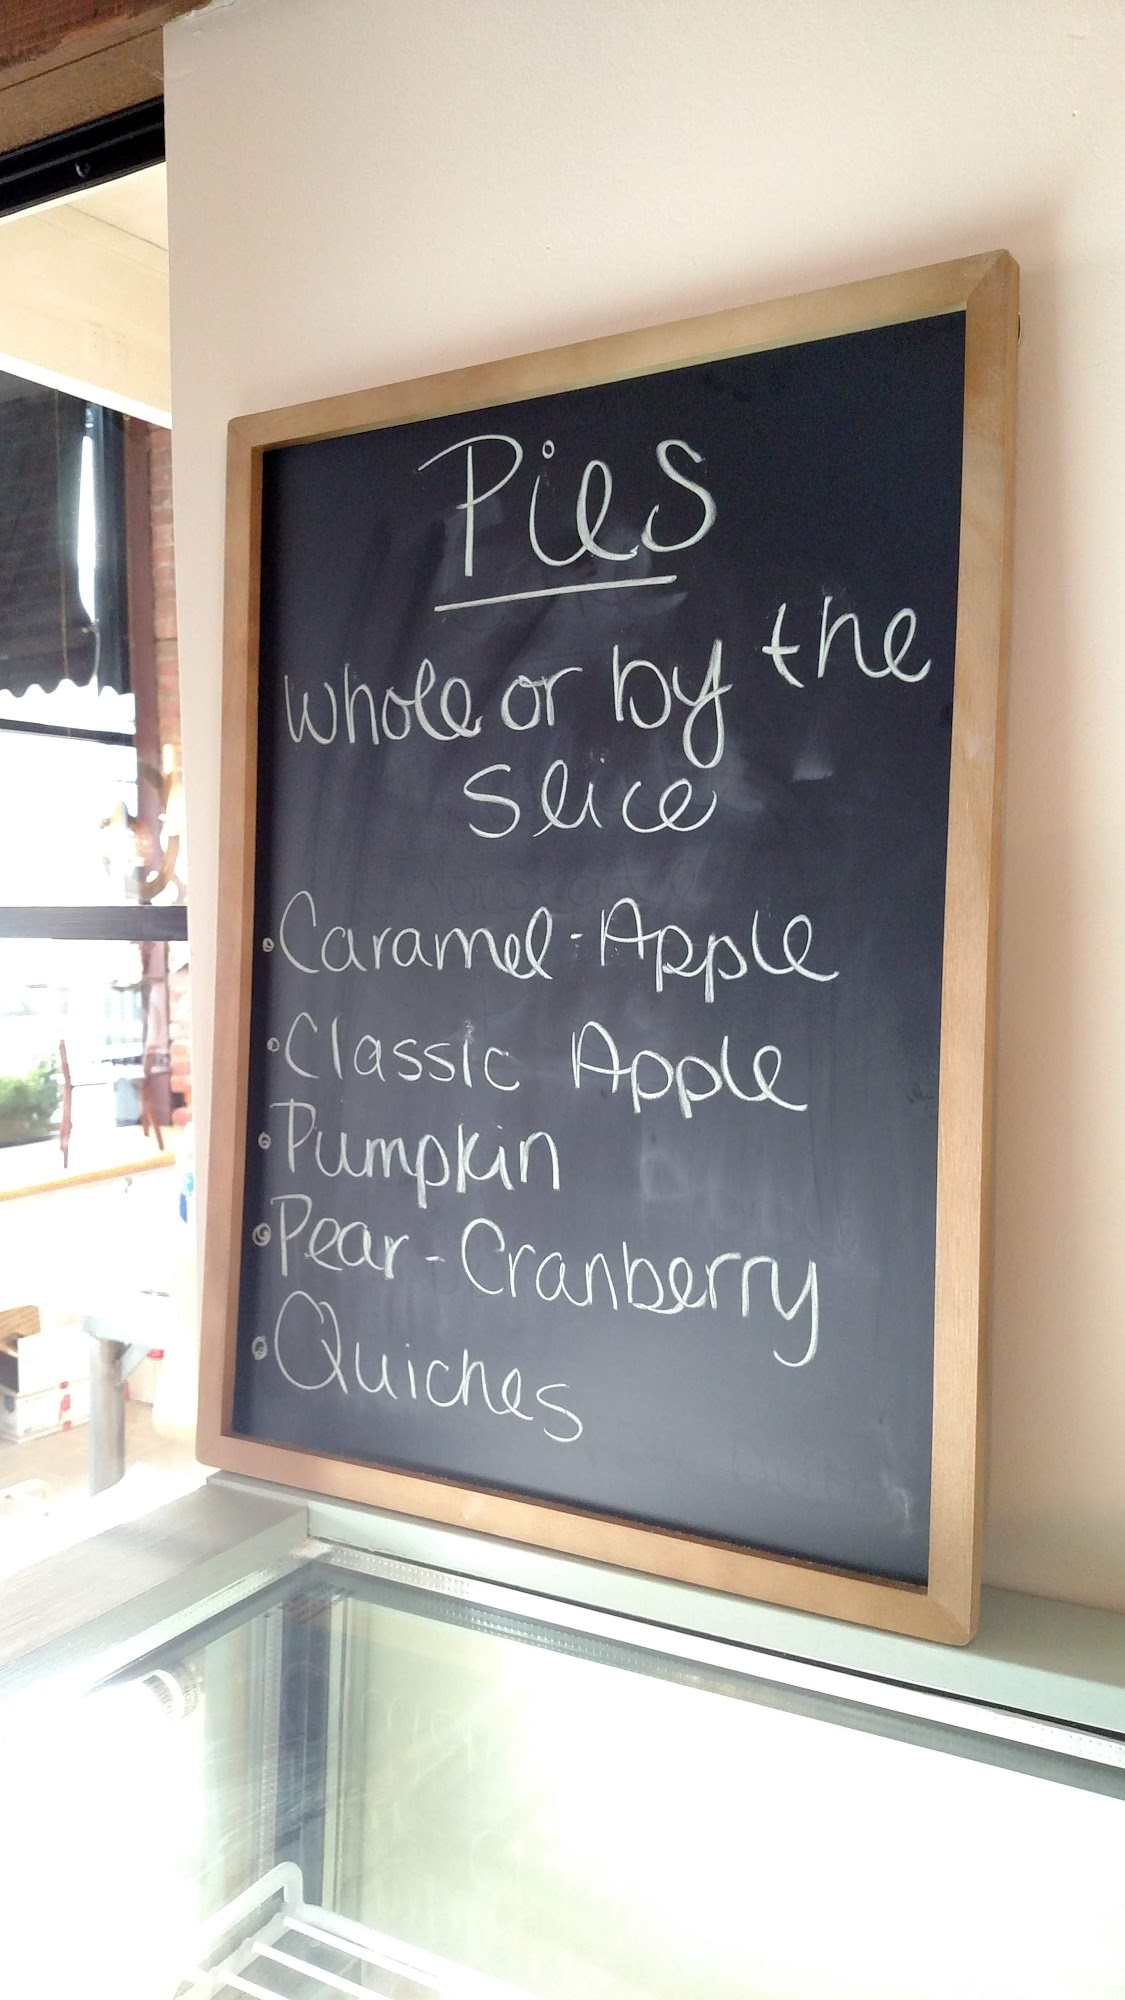 Pies
whole or by the
slice
• Caramel-Apple
• Classic Apple
• Pumpkin
• Pear-Cranberry
• Quiches